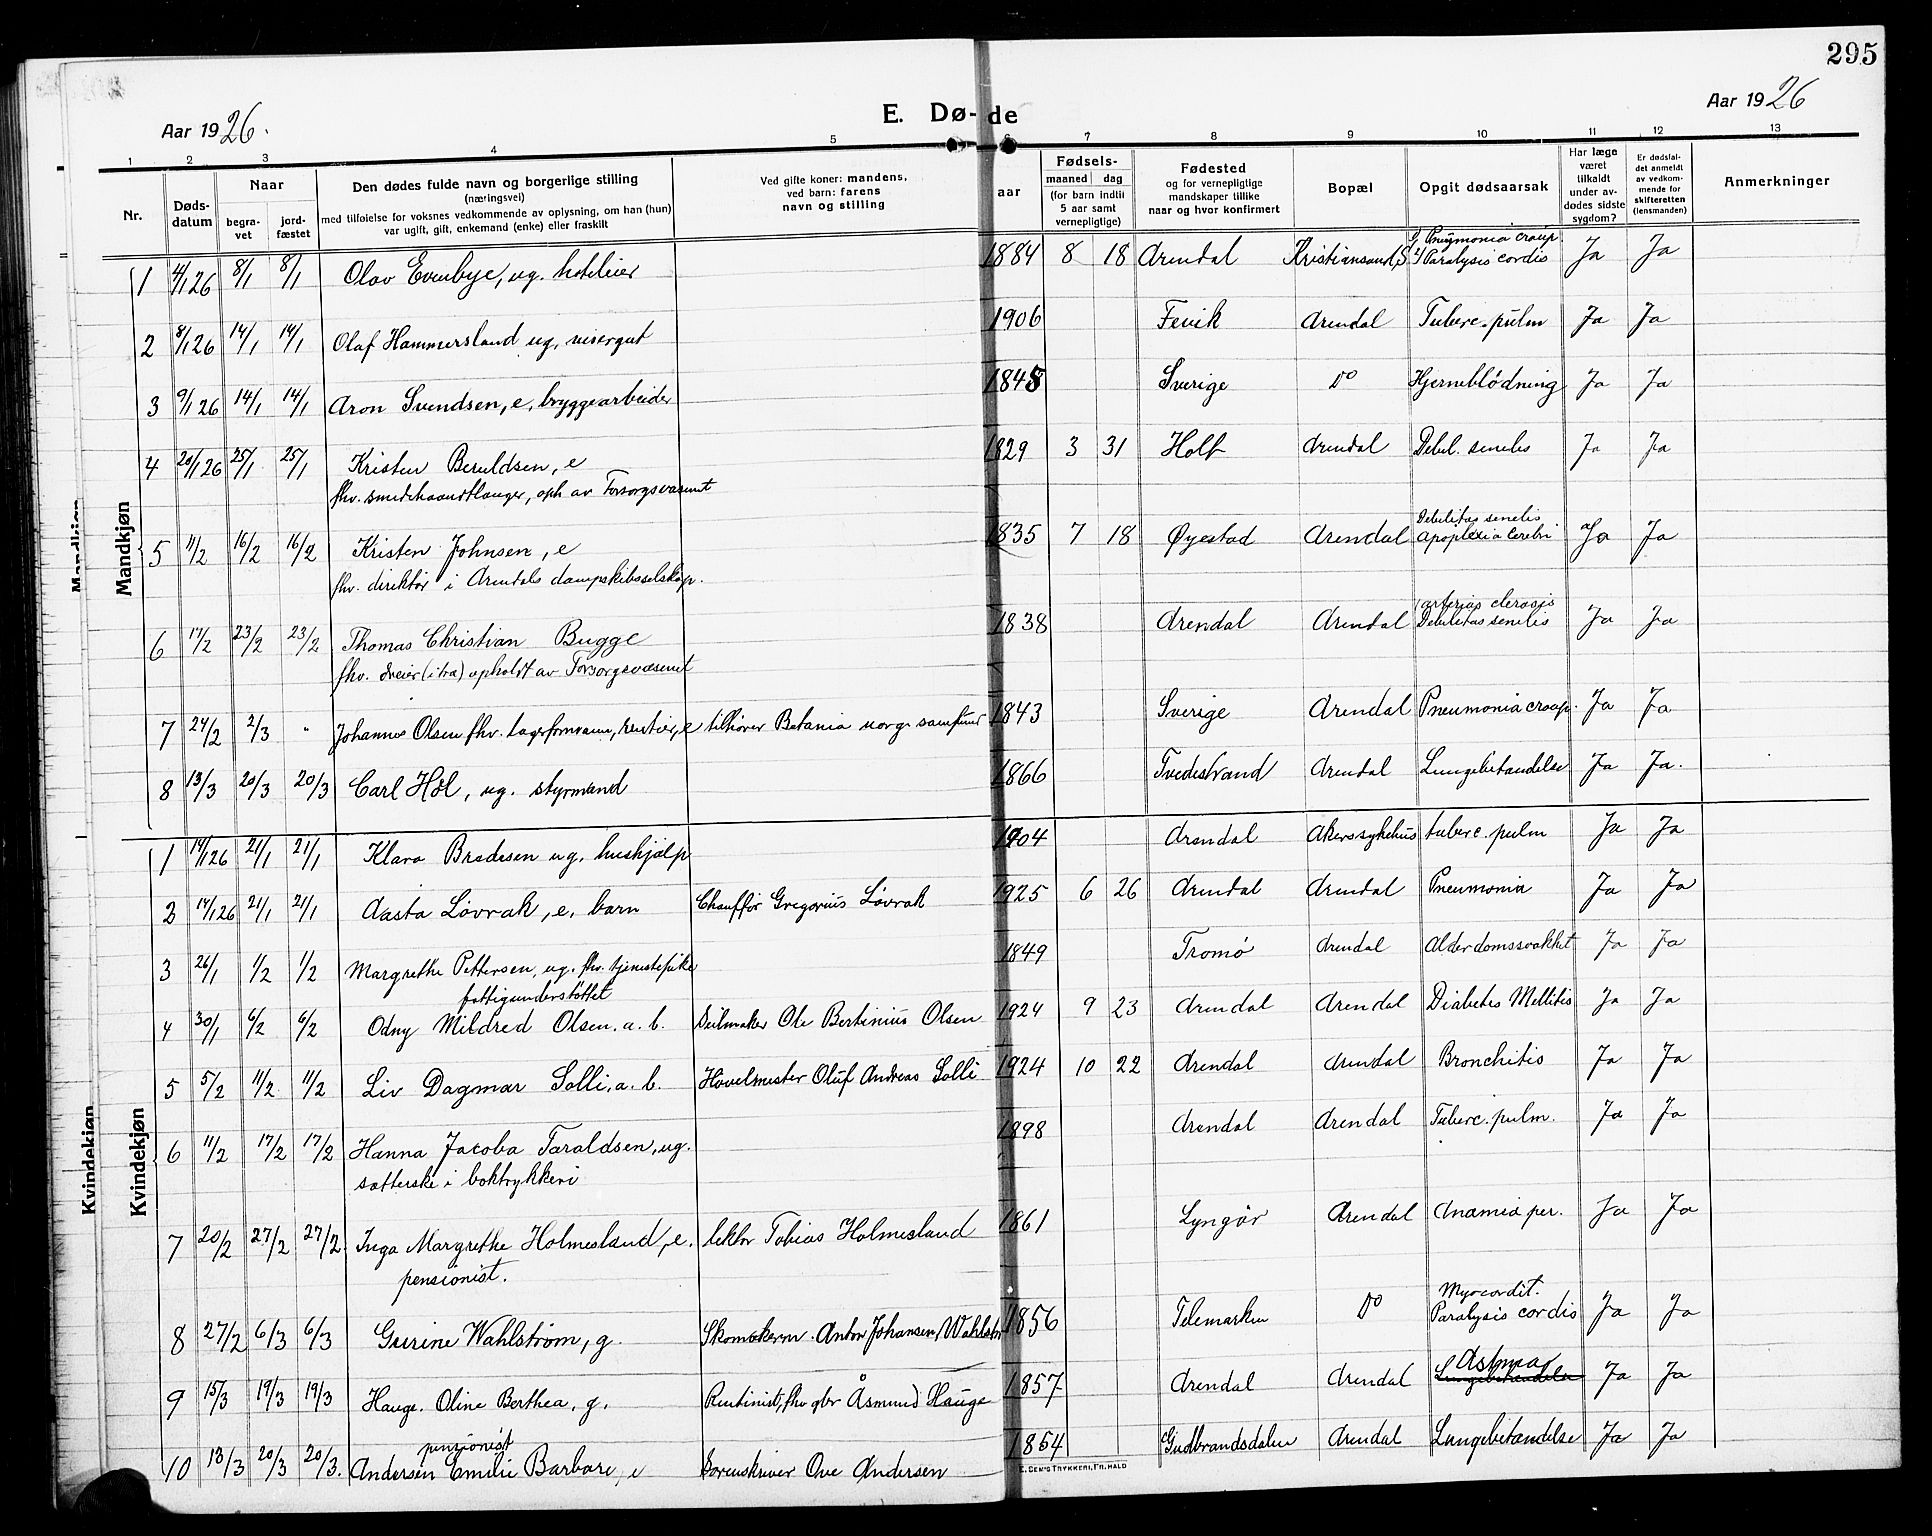 295
Aar 1926.
E. Dø- de
Aar 1926
1 2 3 4 5 6 7 8 9 10 11 12 13
Nr.
Døds-
datum
Naar
begra-
vet
jord-
fæstet
Den dødes fulde navn og borgerlige stilling
(næringsvei)
med tilføielse for voksnes vedkommende av oplysning, om han (hun)
var ugift, gift, enkemand (enke) eller fraskilt
Ved gifte koner: mandens,
ved barn: farens
navn og stilling
aar
Fødsels-
maaned dag
(for barn indtil
5 aar samt
vernepligtige)
Fødested
og for vernepligtige
mandskaper tillike
naar og hvor konfirmert
Bopæl
Opgit dødsaarsak
Har læge
været
tilkaldt
under av-
dødes sidste
sygdom?
Er dødsfal-
det anmeldt
av vedkom-
mende for
skifteretten
(lensmanden)
Anmerkninger
Mandkjøn
1 4/1 26 8/1 8/1 Olav Evenbye, ug. hotelier 1884 8 18 Arendal Kristiansand S Pneumonia croup.
Paralysis cordis Ja Ja
2 8/1 26 14/1 14/1 Olaf Hammersland ug, visergut 1906 Fevik Arendal Tuberc. pulm Ja Ja
3 9/1 26 14/1 14/1 Aron Svendsen, e, bryggearbeider 1845 Sverige Do Hjerneblødning Ja Ja
4 20/1 26 25/1 25/1 Kristen Beruldsen, e 1829 3 31 Holt Arendal Debil. senelis Ja Ja
fhv. smedehaandtlanger, oph av Forsorgsvæsenet
5 11/2 16/2 16/2 Kristen Johnsen, e 1835 7 18 Øyestad Arendal Debilitas senelis
apoplexia cerebri Ja Ja
fhv. direktør i Arendals dampskibsselskap.
6 17/2 23/2 23/2 Thomas Christian Bugge 1838 Arendal Arendal arterias clerosis
Debilitas senelis Ja Ja
fhv. dreier (i træ) opholdt av Forsorgsvæsenet
7 24/2 2/3 " Johannes Olsen fhv. lagerformann, rentier, e tilhører Betania norge samfund 1843 Sverige Arendal Pneumonia croup. Ja Ja
8 13/3 20/3 20/3 Carl Høl, ug. styrmand 1866 Tvedestrand Arendal Lungebetændelse Ja Ja.
Kvindekjøn
1 14/1 26 21/1 21/1 Klara Bradesen ug. hushjælp 1904 Arendal Akers sykehus tuberc. pulm Ja Ja
2 17/1 26 21/1 21/1 Aasta Løvrak, e. barn Chauffør Gregorius Løvrak 1925 6 26 Arendal Arendal Pneumonia Ja Ja
3 26/1 1/2 1/2 Margrethe Pettersen, ug. fhv. tjenestepike 1849 Tromø Arendal Alderdomssvakhet Ja Ja
fattigunderstøttet
4 30/1 6/2 6/2 Odny Mildred Olsen. a. b. Seilmaker Ole Bertinius Olsen 1924 9 23 Arendal Arendal Diabetes Mellitis Ja Ja
5 5/2 11/2 11/2 Liv Dagmar Solli. a. b. Hovelmester Oluf Andreas Solli 1924 10 22 Arendal Arendal Bronchitis Ja Ja
6 11/2 17/2 17/2 Hanna Jacoba Taraldsen, ug. 1898 Arendal Arendal Tuberc. pulm. Ja Ja
sætterske i boktrykkeri
7 20/2 27/2 27/2 Inga Margrethe Holmesland, e. lektor Tobias Holmesland 1861 Lyngør Arendal Anamia per. Ja Ja
pensionist.
8 27/2 6/3 6/3 Gurine Wahlstrøm, g. Skomakerm. Anton Johansen Wahlstr 1856 Telemarken Do Myocordit.
Paralysis cordis Ja Ja
9 15/3 19/3 19/3 Hauge. Oline Berthea, g. Rentinist, fhv gbr Åsmund Hauge 1857 Arendal Arendal Astma Lungebetændelse Ja Ja
pensionist
10 13/3 20/3 20/3. Andersen Emilie Barbare, e Sorenskriver Ove Andersen 1854 Gudbrandsdalen Arendal Lungebetændelse Ja Ja
E. SEM'S TRYKKERI, FR.HALD